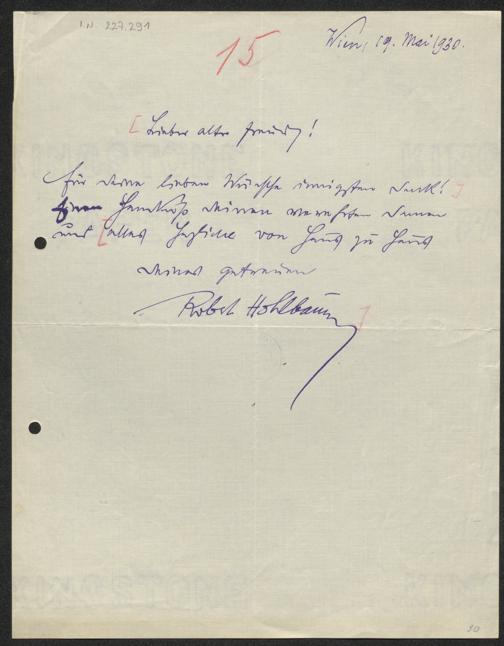 I.N. 227.291
15
Wien, 19. Mai 1930.
[ Lieber alter Freund!
Für deine lieben Wünsche innigsten Dank! ]
Handkuß deinen verehrten Damen
und [ alles Herzliche von Haus zu Haus
deines getreuen
Robert Hohlbaum ]